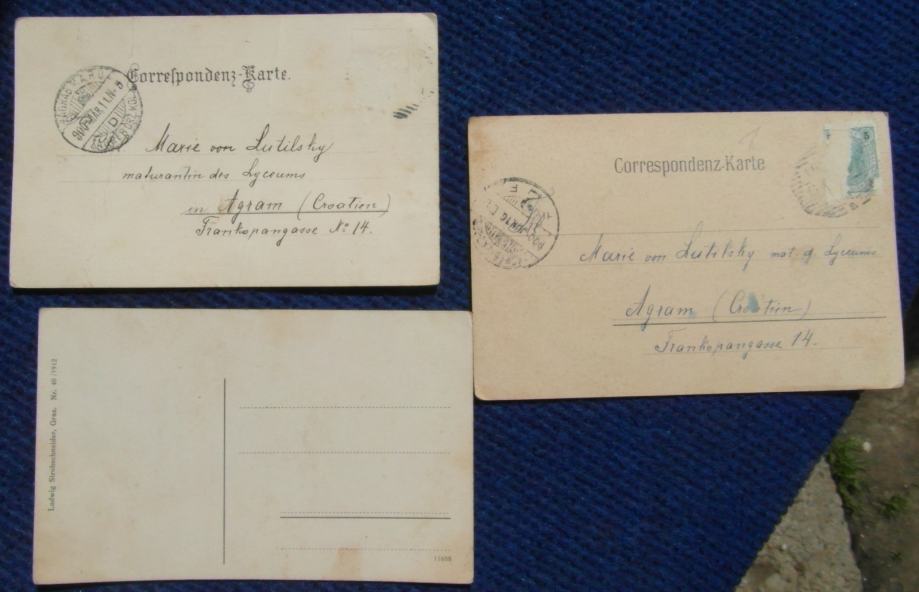 Correspondenz-Karte.
Marie von Lutilsky
maturantin des Lyceums
in Agram (Croatien)
Frankopangasse No 14.
Correspondenz-Karte
5
Marie von Lutilsky mat. d. Lyceums
Agram (Croatien)
Frankopangasse 14.
Ludwig Strohschneider, Graz. Nr. 40/1912